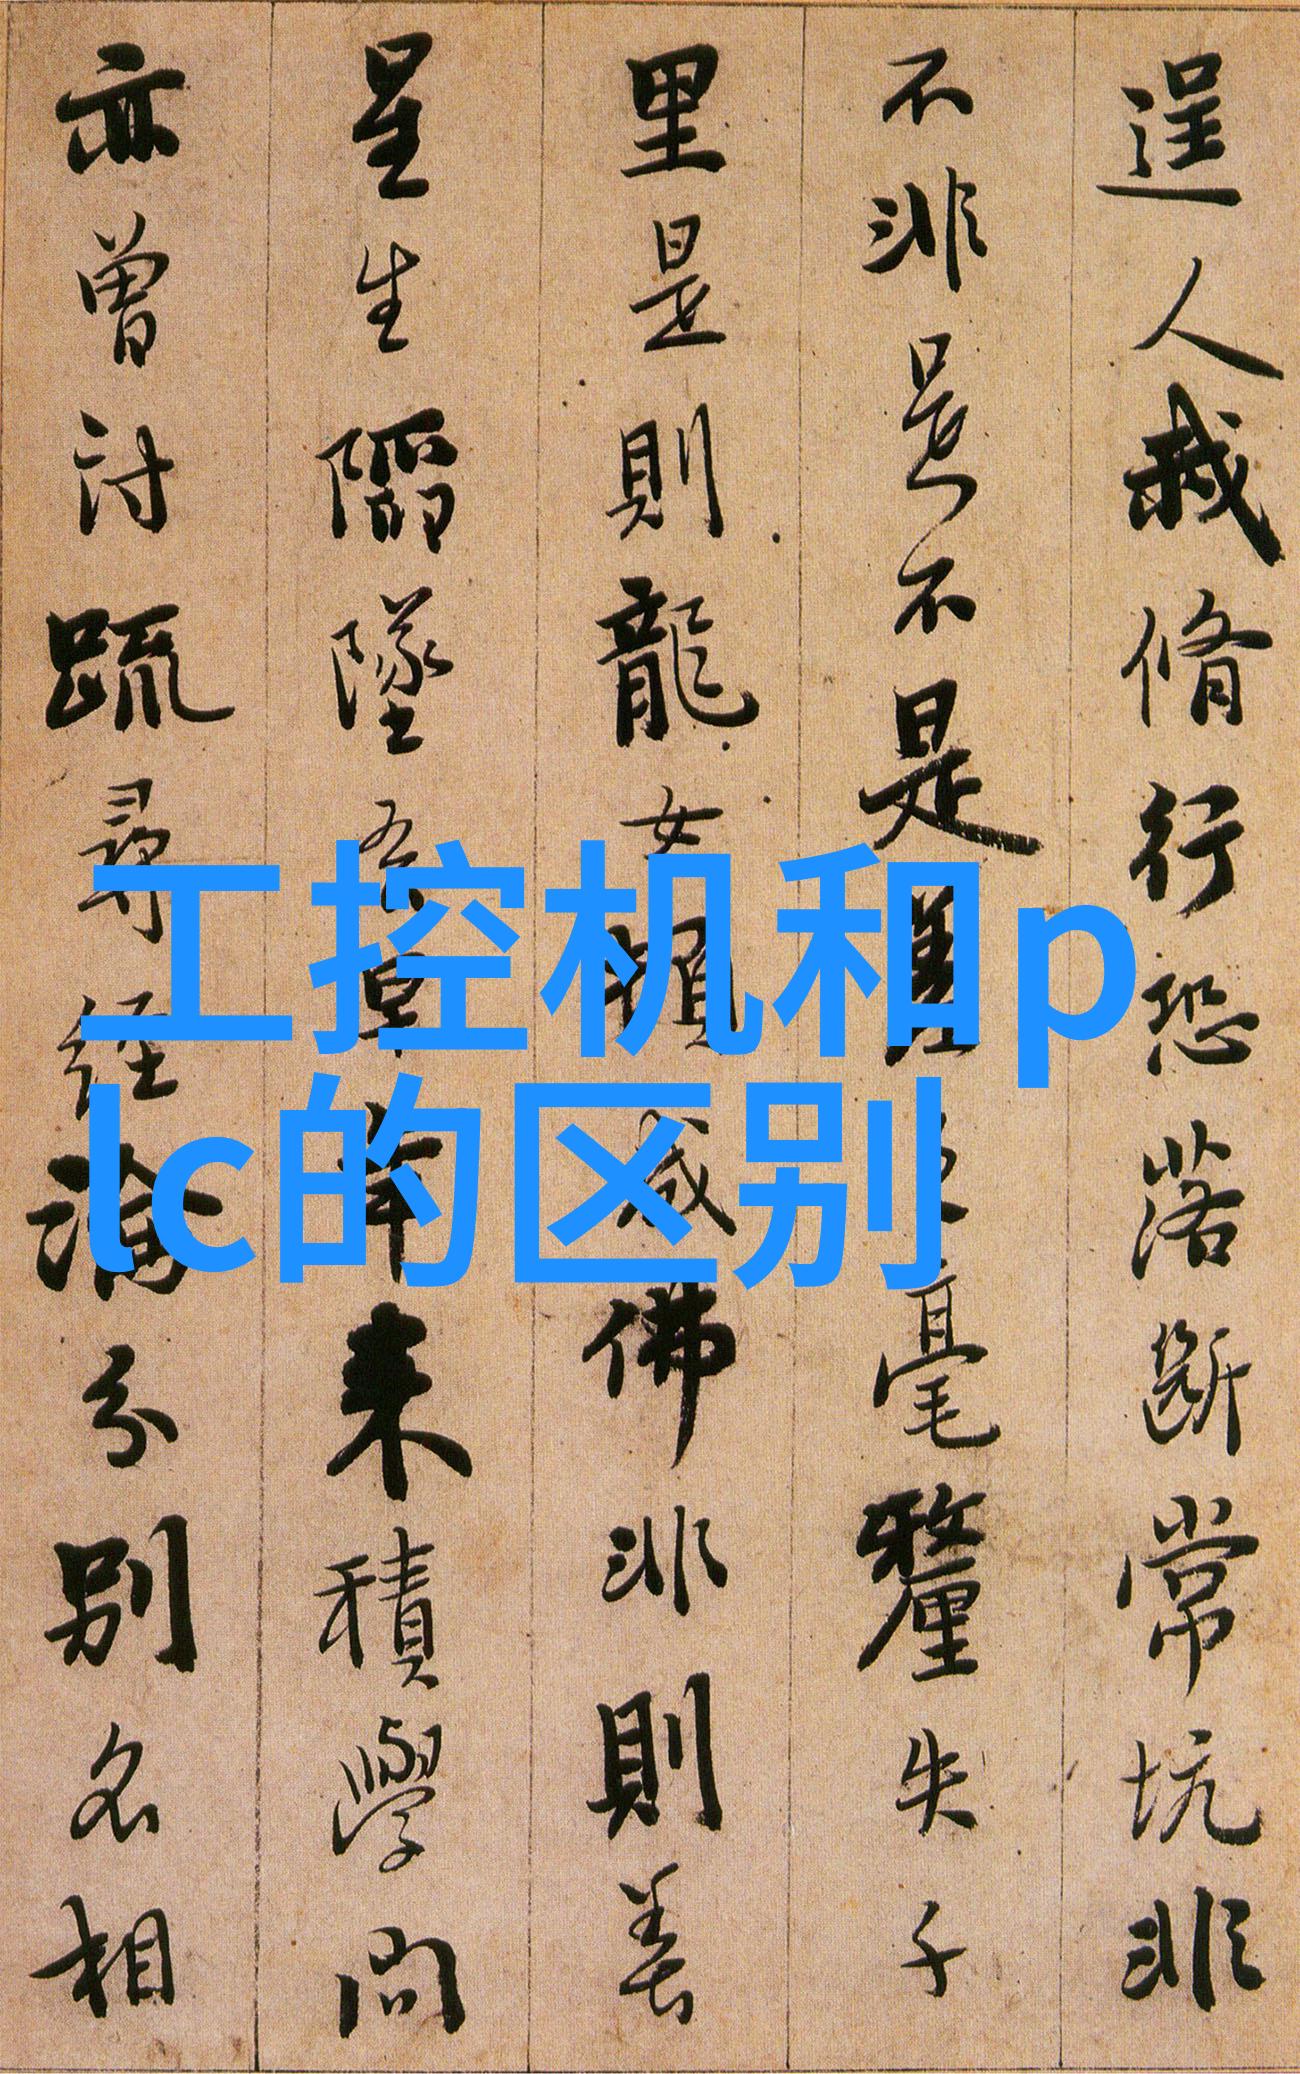 逞人我脩行恐落斷常坑非
不非是不是差之毫釐失千
里是則龍女頓成佛非則善
星生陷墜吾早年來積學問
亦曾討疏尋經論分別名相
工控机和p
lc的区别